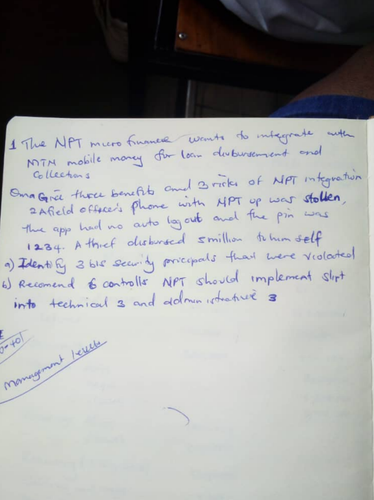 1 The NPT micro finance wants to integrate with
MTN mobile money for loan disbursement and
collections
Qna Give three benefits and 3 risks of NPT integration
2 A field officer's phone with NPT up was stollen,
the app had no auto log out and the pin was
1234. A thief disbursed 5 million to him self
a) Identify 3 security principals that were violated
b) Recomend 6 controlls NPT should implement split
into technical 3 and administrative 3
Management levels